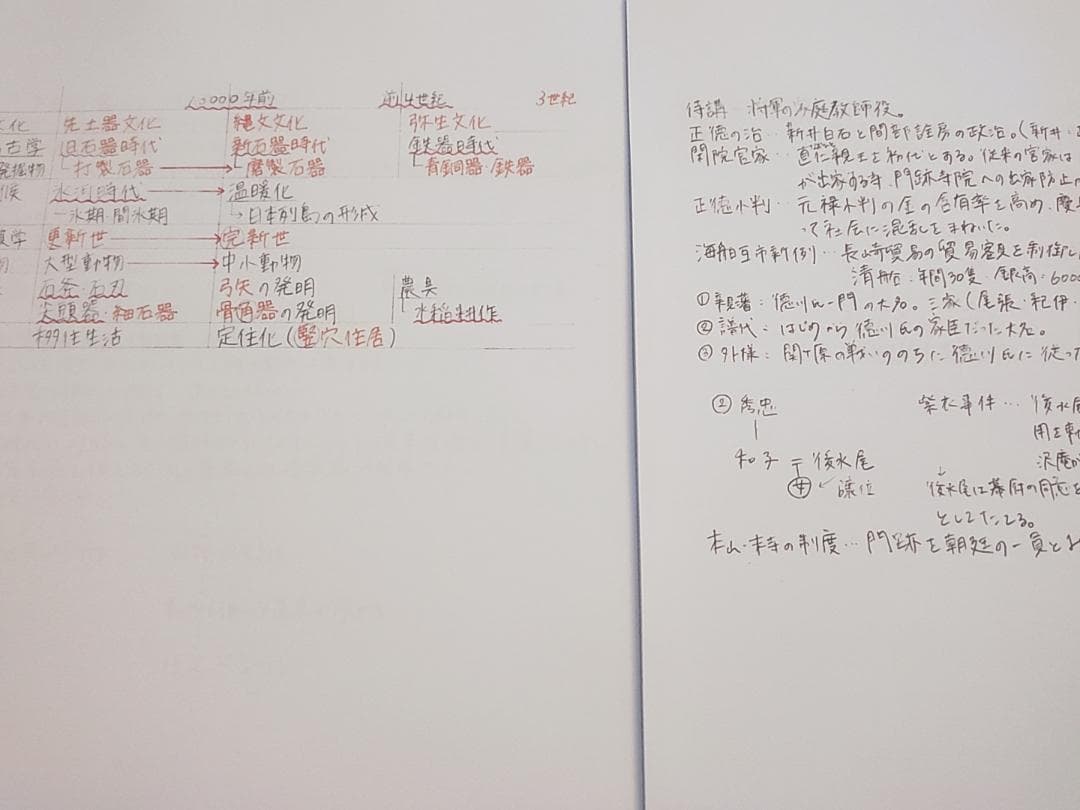 10000年前 前4世紀 3世紀
文化 先土器文化 縄文文化 弥生文化
古学 旧石器時代 新石器時代 鉄器時代
発掘物 打製石器 → 磨製石器 青銅器・鉄器
候 氷河時代 → 温暖化
氷期・間氷期 → 日本列島の形成
学 更新世 → 完新世
物 大型動物 → 中小動物
石斧・石刃 弓矢の発明 農具
尖頭器・細石器 骨角器の発明 水稲耕作
移住生活 定住化(竪穴住居)
侍講 将軍の家庭教師役。
正徳の治… 新井白石と間部詮房の政治。(新井・
閑院宮家… 直仁親王を初代とする。従来の宮家は
が出家する寺、門跡寺院への出家防止
正徳小判… 元禄小判の金の含有率を高め、
って社会に混乱をまねいた。
海舶互市新例… 長崎貿易の貿易額を制御し
清船:年間30隻 銀高:6000
①親藩:徳川氏一門の大名。三家(尾張・紀伊・
②譜代:はじめから徳川氏の家臣だった大名。
③外様:関ヶ原の戦いののちに徳川氏に従っ
② 秀忠 紫衣事件… 後水尾
和子 = 後水尾 沢庵が
譲位 後水尾は幕府の同意を
としてたてる。
本山・末寺の制度… 門跡を朝廷の一員と